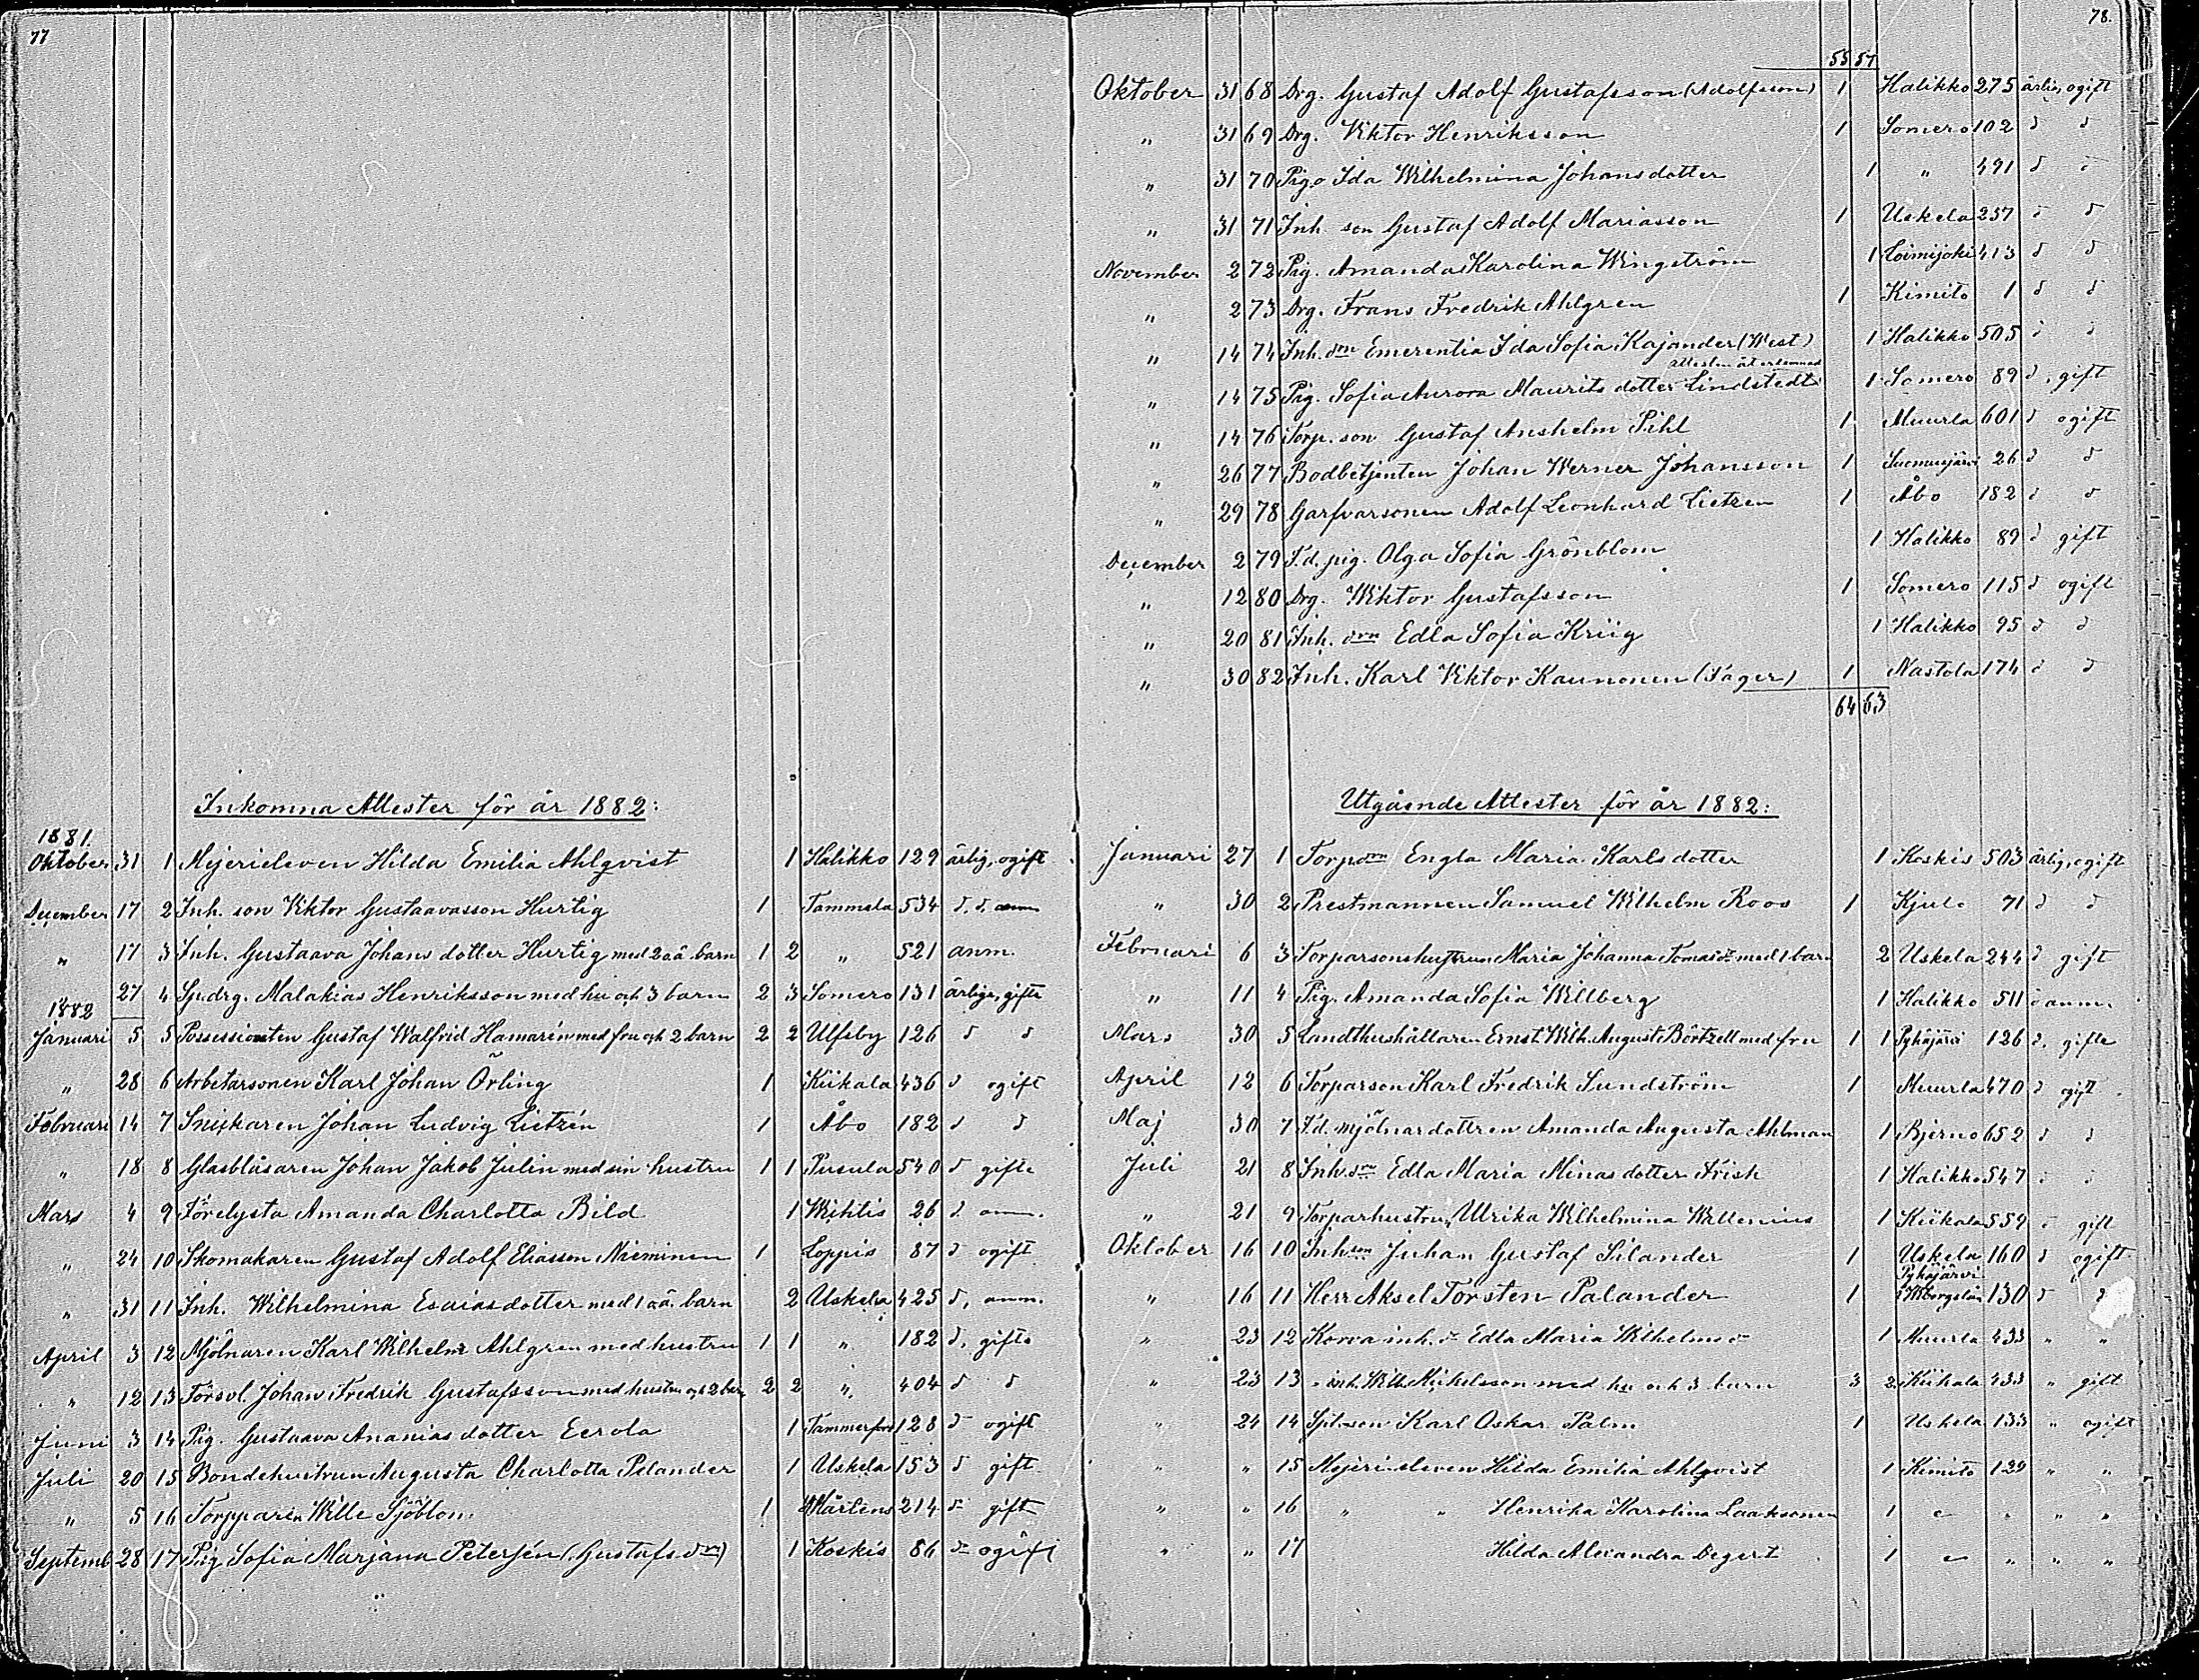 77
Inkomna Attester för år 1882:
1881.
Oktober 31 1 Mejerieleven Hilda Emilia Ahlqvist 1 Halikko 129 ärlig, ogift
December 17 2 Inh. son Viktor Gustaavasson Hurtig 1 Tammela 534 d. d. anm
" 17 3 Inh. Gustaava Johans dotter Hurtig med 2 oä. barn 1 2 " 521 anm.
27 4 Sp. drg. Malakias Henriksson med hu och 3 barn 2 3 Somero 131 ärlige, gifte
1882
Januari 5 5 Possessionaten Gustaf Walfrid Hamarén med fru och 2 barn 2 2 Ulfsby 126 d d
" 28 6 Arbetarsonen Karl Johan Örling 1 Kiikala 436 d ogift
Februari 14 7 Snickaren Johan Ludvig Lietzén 1 Åbo 182 d d
" 18 8 Glasblåsaren Johan Jakob Julin med sin hustru 1 1 Pusula 540 d gifte
Mars 4 9 Förelysta Amanda Charlotta Bild 1 Wichtis 26 d anm.
" 24 10 Skomakaren Gustaf Adolf Eliasson Nieminen 1 Loppis 87 d ogift
" 31 11 Inh. Wilhelmina Esaias dotter med 1 oä. barn 2 Uskela 425 d, anm.
April 3 12 Mjölnaren Karl Wilhelm Ahlgren med hustru 1 1 " 182 d, gifte
" 12 13 Försvl. Johan Fredrik Gustafsson med hustru och 2 barn 2 2 " 404 d d
Juni 3 14 Pig. Gustaava Ananias dotter Eerola 1 Tammerfors 128 d ogift
Juli 20 15 Bondehustrun Augusta Charlotta Pelander 1 Uskela 153 d gift
" 5 16 Torpparen Wille Sjöblom 1 Mårtens 214 d gift
Septemb 28 17 Pig Sofia Marjana Petersén (Gustafs drr) 1 Koskis 86 d ogift
78.
55 57
Oktober 31 68 Drg. Gustaf Adolf Gustafsson (Adolfsson) 1 Halikko 275 ärlig, ogift
" 31 69 Drg. Viktor Henriksson 1 Somero 102 d d
" 31 70 Pig. Ida Wilhelmina Johans dotter 1 " 491 d d
" 31 71 Inh. son Gustaf Adolf Mariasson 1 Uskela 257 d d
November 2 72 Pig. Amanda Karolina Wingström 1 Loimijoki 413 d d
" 2 73 Drg. Frans Fredrik Ahlgren 1 Kimito 1 d d
" 14 74 Inh. drr Emerentia Ida Sofia Kajander (West) 1 Halikko 505 d d
attesten återlemnad
" 14 75 Pig. Sofia Aurora Maurits dotter Lindstedt 1 Somero 89 d, gift
" 14 76 Torp. son Gustaf Anshelm Pihl 1 Muurla 601 d ogift
" 26 77 Bodbetjenten Johan Werner Johansson 1 Suomusjärvi 26 d d
" 29 78 Garfvarsonen Adolf Leonhard Lietzen 1 Åbo 182 d d
December 2 79 F.d. pig. Olga Sofia Grönblom 1 Halikko 89 d gift
" 12 80 Drg. Wiktor Gustafsson 1 Somero 115 d ogift
" 20 81 Inh. drr Edla Sofia Kriig 1 Halikko 95 d d
" 30 82 Inh. Karl Viktor Kaunonen (Jäger) 1 Nastola 174 d d
64 63
Utgående Attester för år 1882:
Januari 27 1 Torp drr Engla Maria Karls dotter 1 Koskis 503 ärlig, ogift
" 30 2 Prestmannen Samuel Wilhelm Roos 1 Kjulo 71 d d
Februari 6 3 Torparsonshustrun Maria Johanna Tomas dr med 1 barn 2 Uskela 244 d gift
" 11 4 Pig. Amanda Sofia Willberg 1 Halikko 511 d anm.
Mars 30 5 Landthushållaren Ernst Wilh. August Börtzell med fru 1 1 Pyhäjärvi 126 d. gifte
April 12 6 Torparson Karl Fredrik Lundström 1 Muurla 470 d ogift
Maj 30 7 F.d. mjölnardottren Amanda Augusta Ahlman 1 Bjerno 652 d d
Juli 21 8 Inh. drr Edla Maria Minas dotter Frisk 1 Halikko 547 d d
" 21 9 Torparhustrun Ulrika Wilhelmina Wallenius 1 Kiikala 559 d gift
Oktober 16 10 Inh son Juhan Gustaf Silander 1 Uskela 160 d ogift
" 16 11 Herr Aksel Torsten Palander 1 Pyhäjärvi Wiborgs län 130 d d
" 23 12 Korva inh. dr Edla Maria Wilhelms dr 1 Muurla 433 " "
" 23 13 " inh. Wilh. Mikelsson med hu och 3 barn 3 2 Kiikala 433 " gift
" 24 14 Spl. son Karl Oskar Palm 1 Uskela 133 " ogift
" " 15 Mejeri eleven Hilda Emilia Ahlqvist 1 Kimito 129 " "
" " 16 " " Henrika Karolina Laaksonen 1 " " " "
" " 17 Hilda Alexandra Degert 1 " " " "